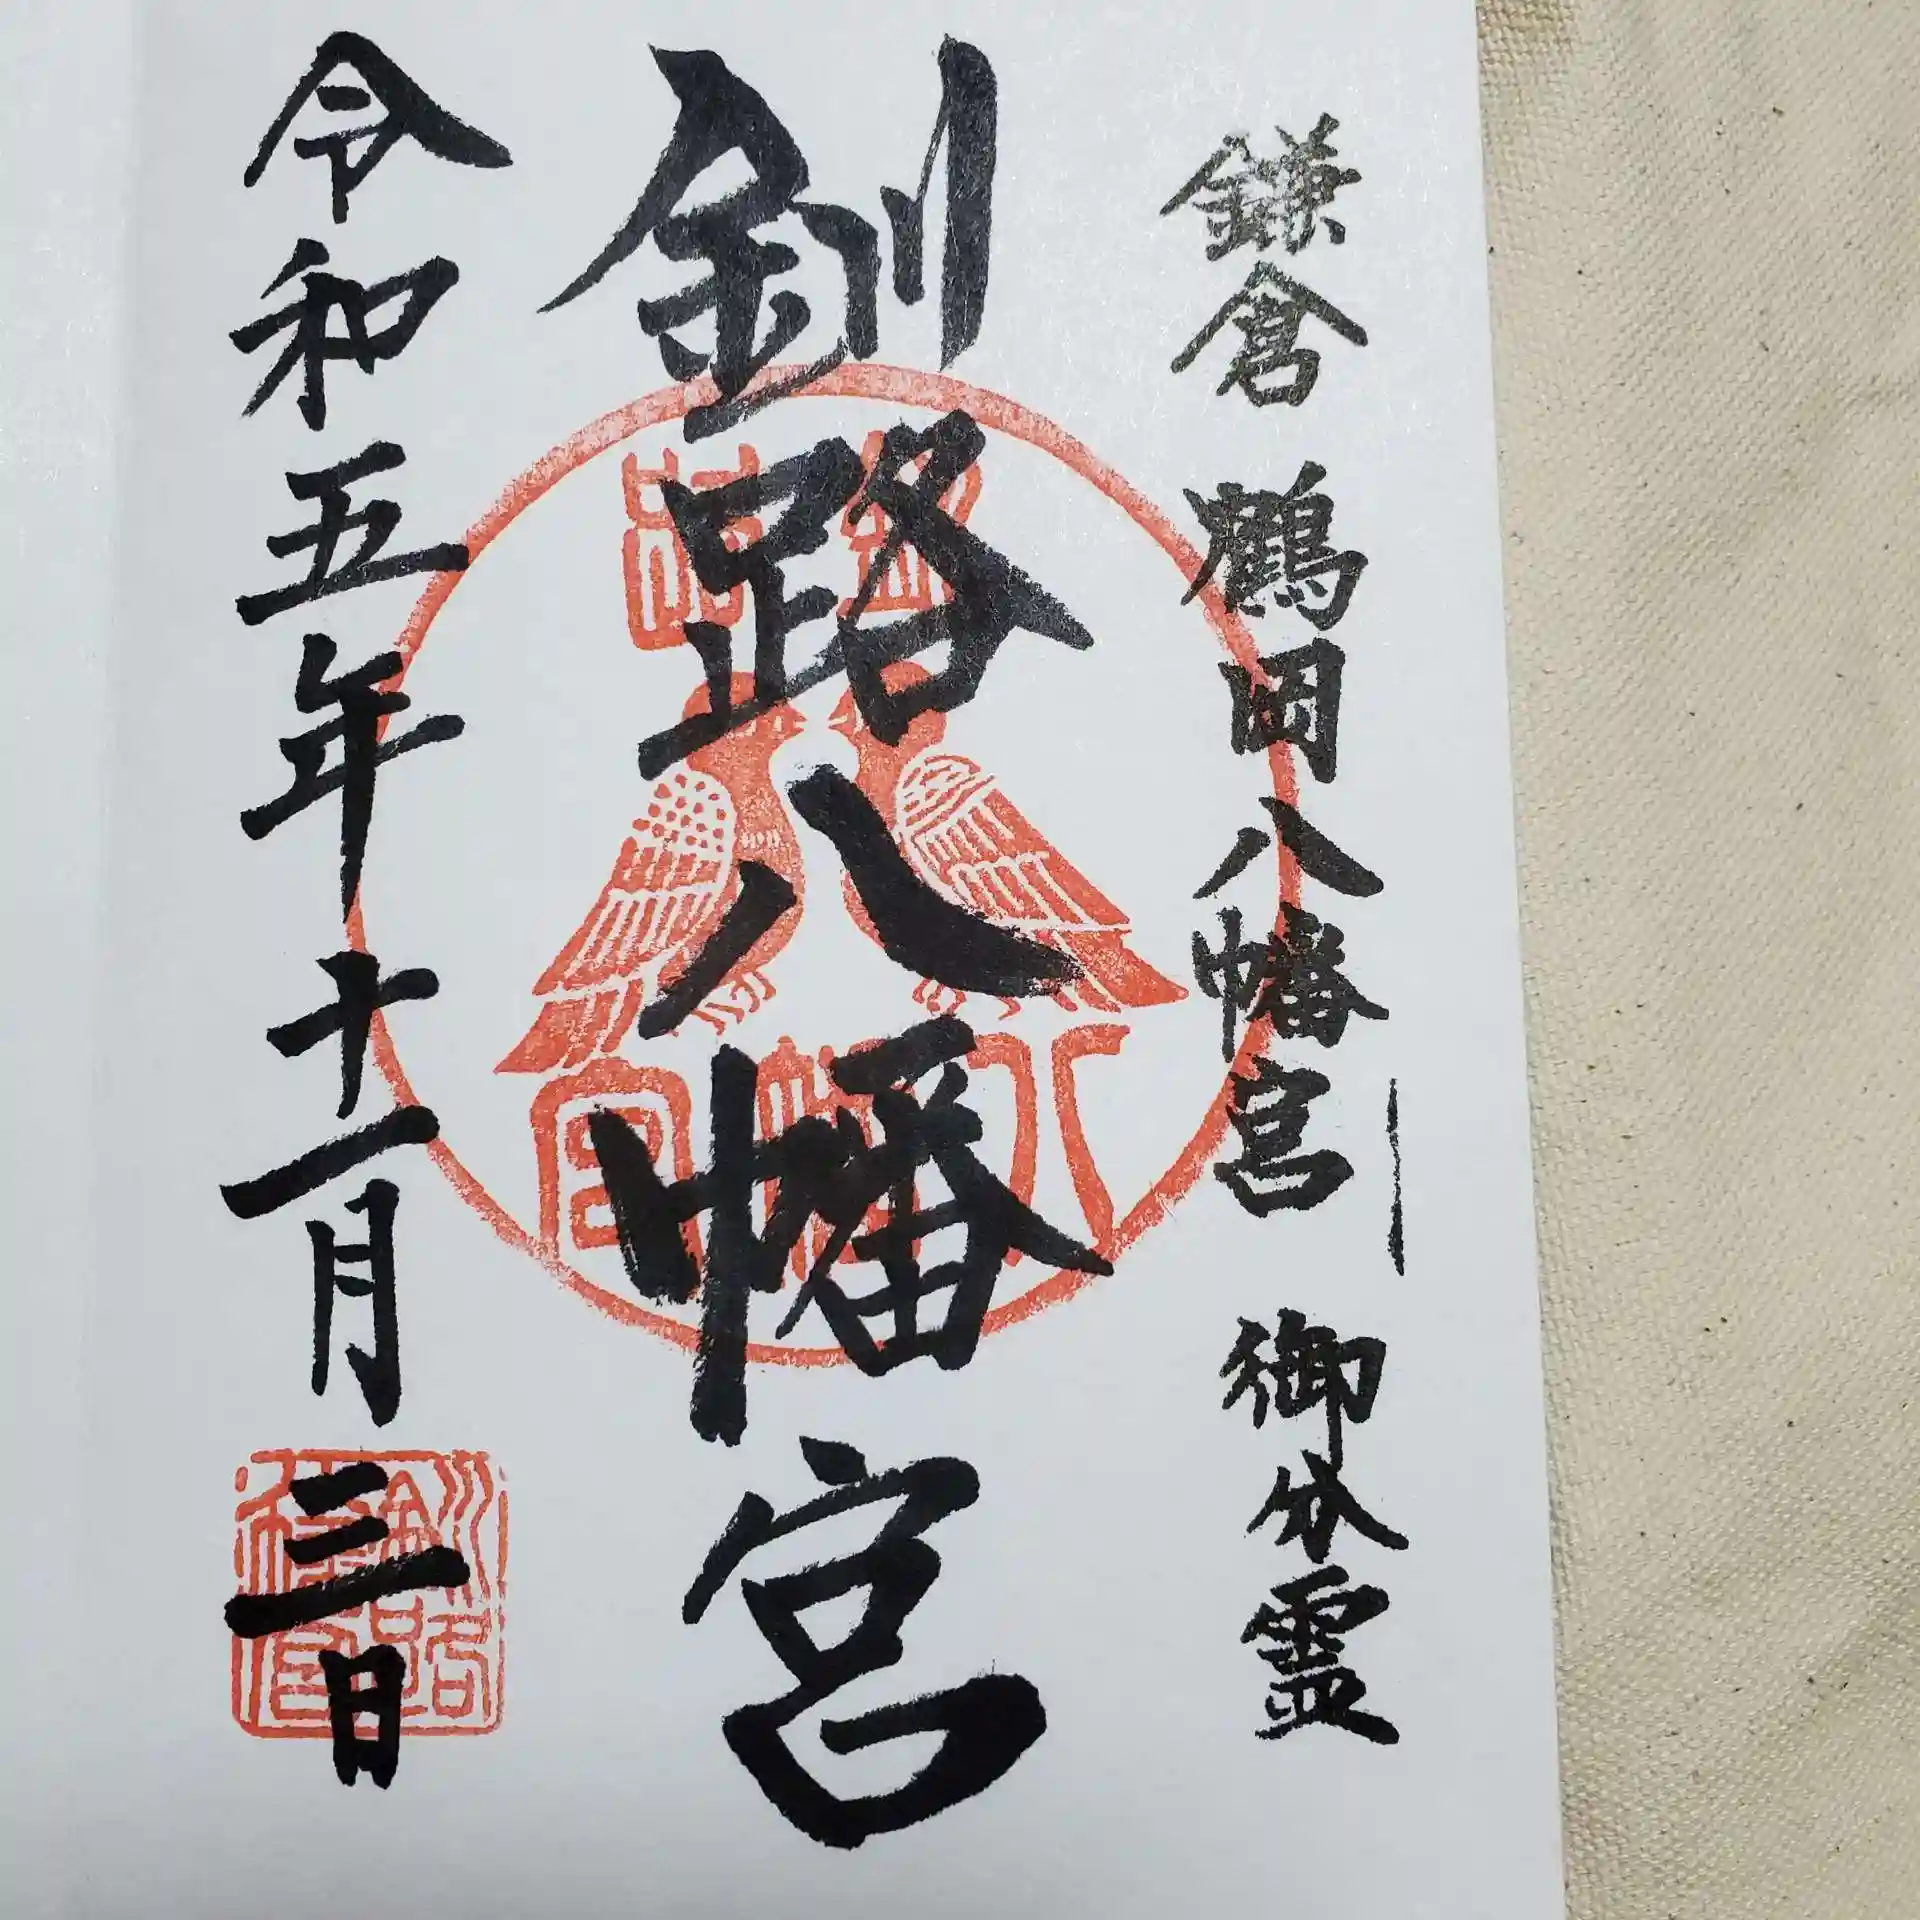 鎌倉 鶴岡八幡宮 御分霊
釧路八幡宮
釧路
八幡宮
令和五年十一月三日